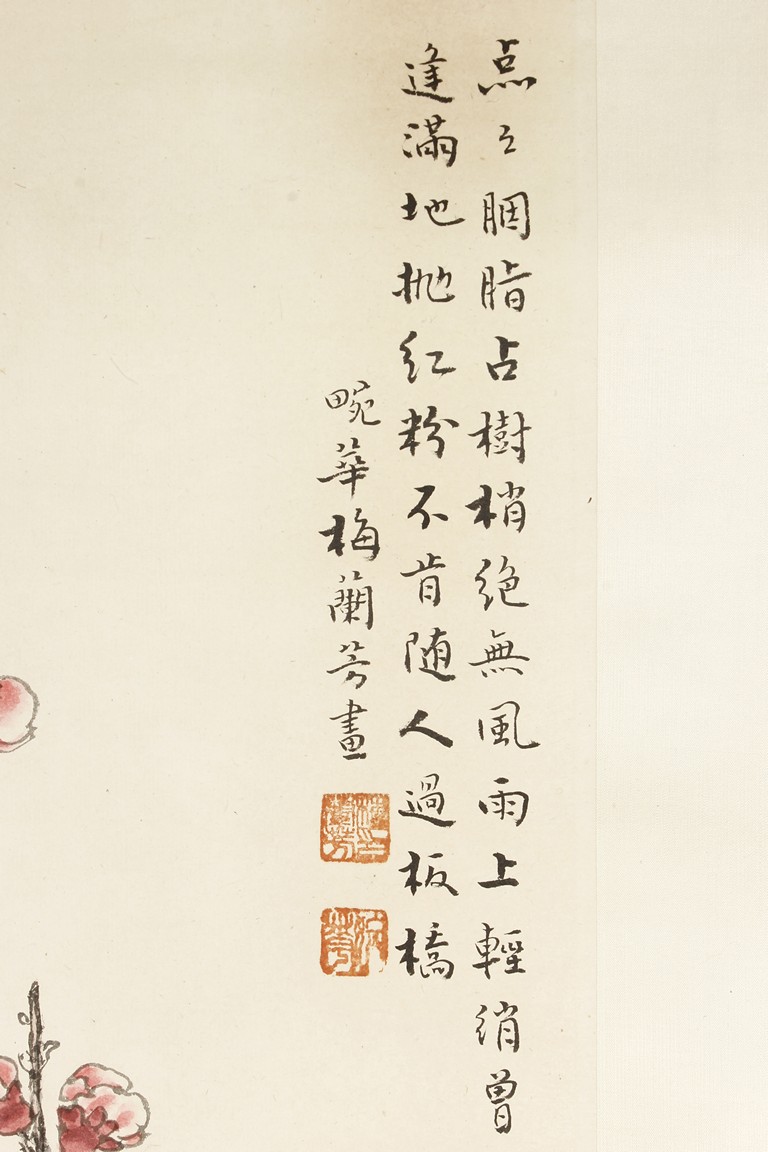 点〻胭脂占樹梢絶無風雨上輕綃曽
逢滿地抛红粉不肯随人過板橋
畹華梅蘭芳畫